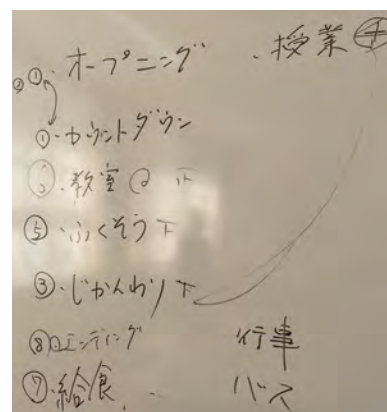 ②①・オープニング
・授業④
①・カウントダウン
・教室
⑤・ふくそう下
③・じかんわり下
⑧エンディング
行事
⑦・給食
バス